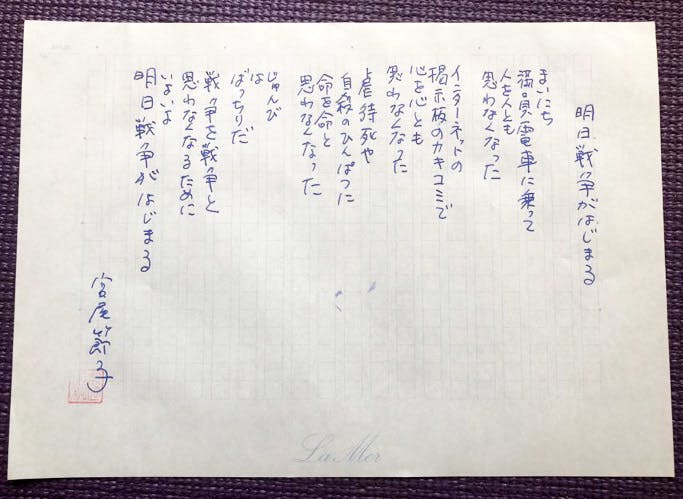 明日戦争がはじまる
まいにち
満員電車に乗って
人を人とも
思わなくなった
インターネットの
掲示板のカキコミで
心を心とも
思わなくなった
虐待死や
自殺のひんぱつに
命を命と
思わなくなった
じゅんび
は
ばっちりだ
戦争を戦争と
思わなくなるために
いよいよ
明日戦争がはじまる
宮尾節子
La Mer